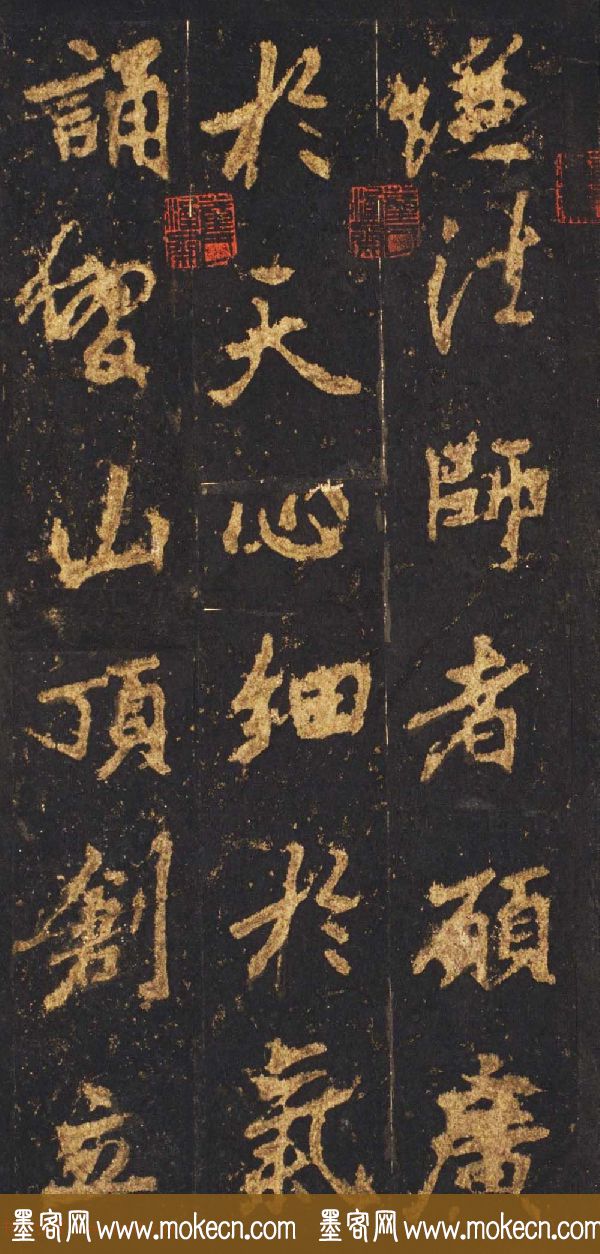 謙法師者願廣
於天心細於氣
誦習山頂創立
墨客网 www.mokecn.com 墨客网 www.mokecn.com